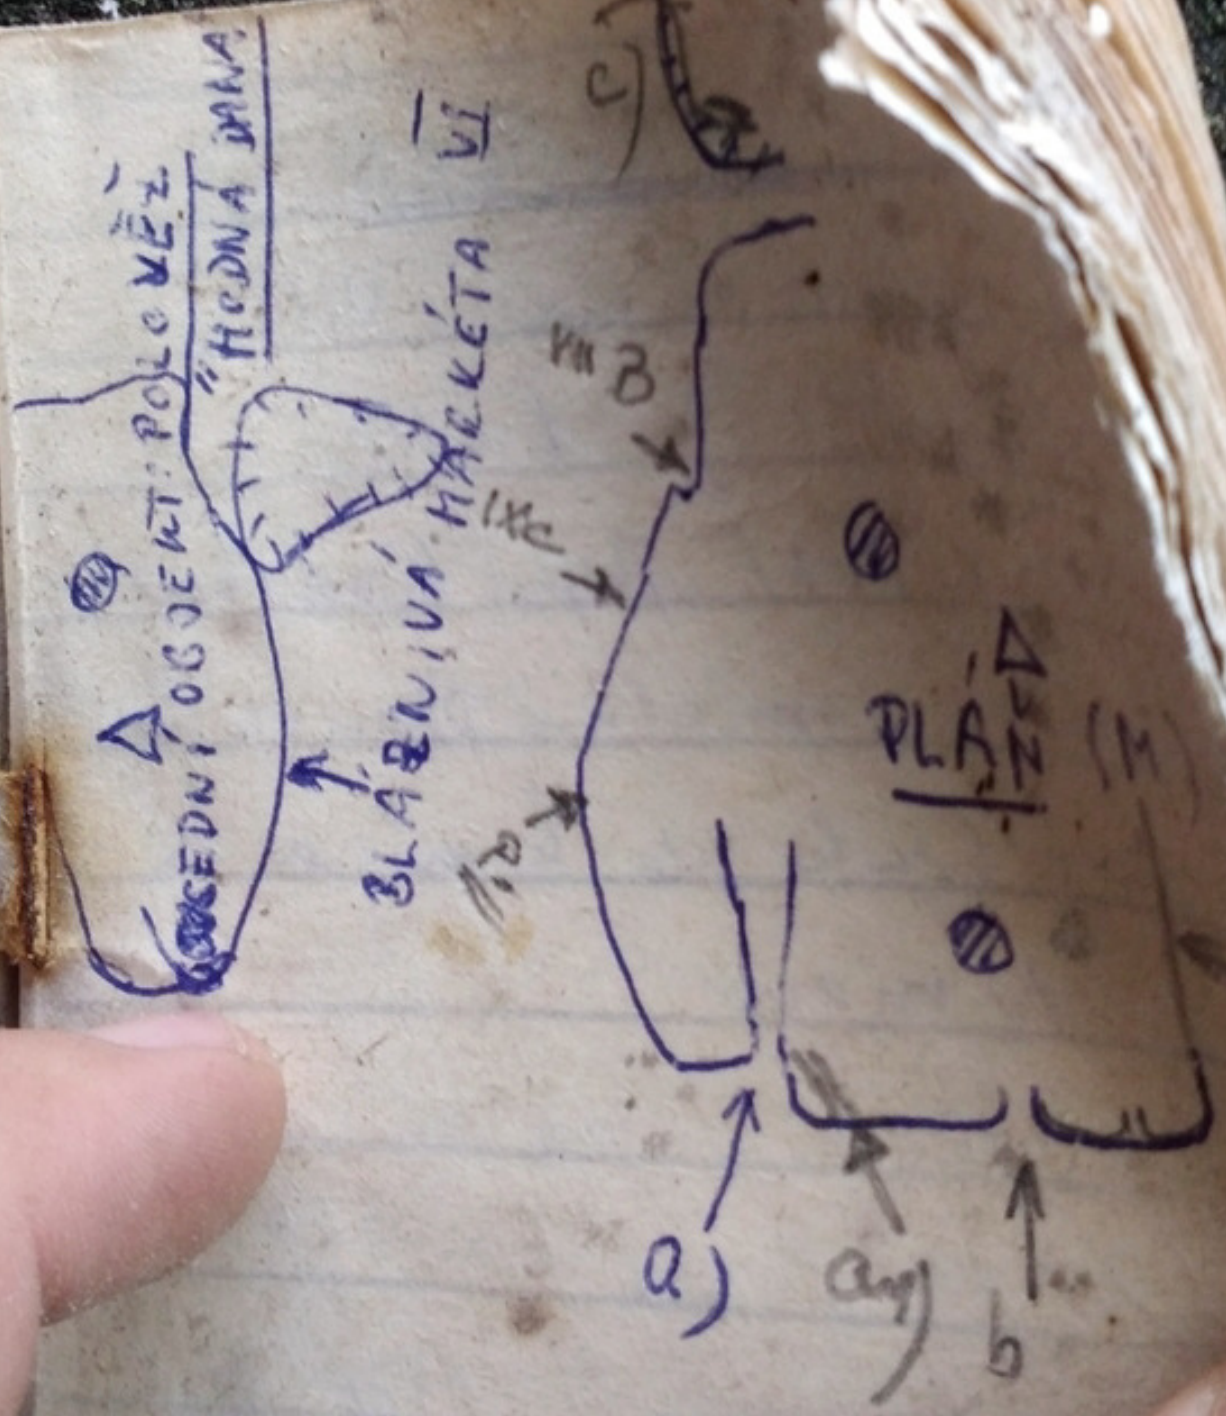 SEDNÍ OBJEKT: POLOVĚŽ
"HODNÁ DANA"
BLÁZNIVÁ MARKÉTA VI
c)
VIII B
IXc
PLÁN (M)
a)
b